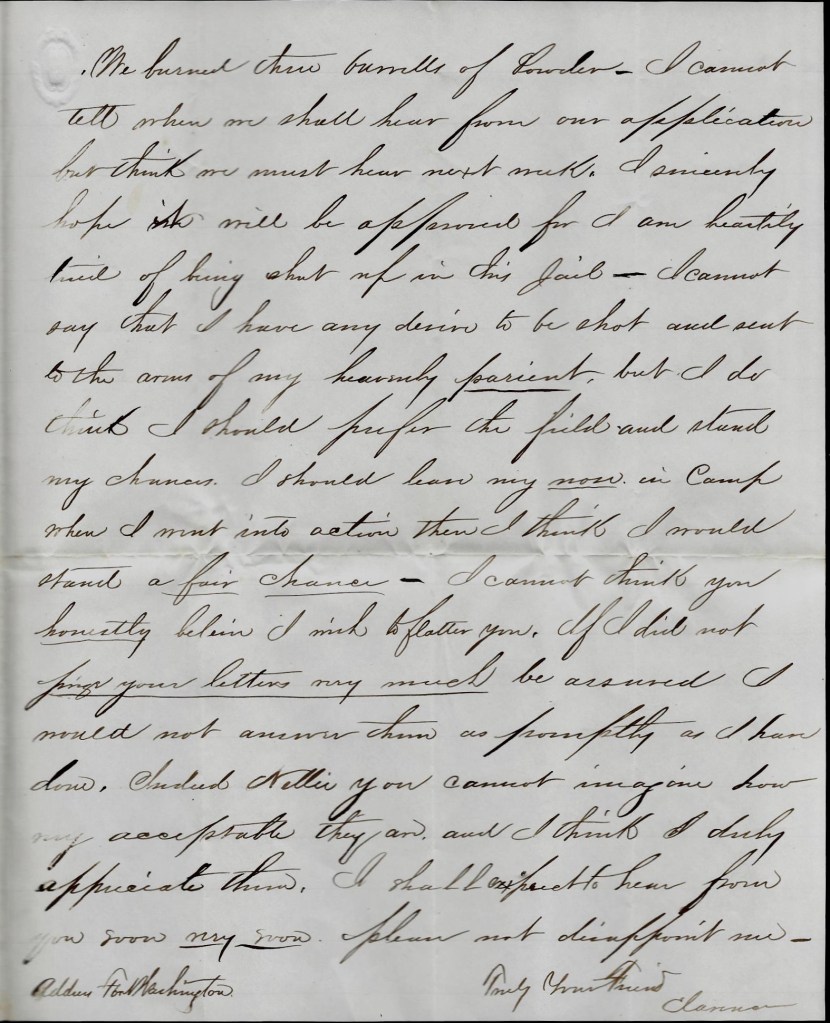 We burned three barrells of Powder – I cannot
tell when we shall hear from our application
but think we must hear next week. I sincerely
hope it will be approved for I am heartily
tired of being shut up in this Jail – I cannot
say that I have any desire to be shot and sent
to the arms of my heavenly parient, but I do
think I should prefer the field and stand
my chances. I should leave my nose in Camp
when I went into action then I think I would
stand a fair chance – I cannot think you
honestly believe I wish to flatter you. If I did not
prize your letters very much be assured I
would not answer them as promptly as I have
done. Indeed Nellie you cannot imagine how
very acceptable they are and I think I duly
appreciate them. I shall expect to hear from
you soon very soon. please not disappoint me –
Address Fort Washington
Truly Your Friend